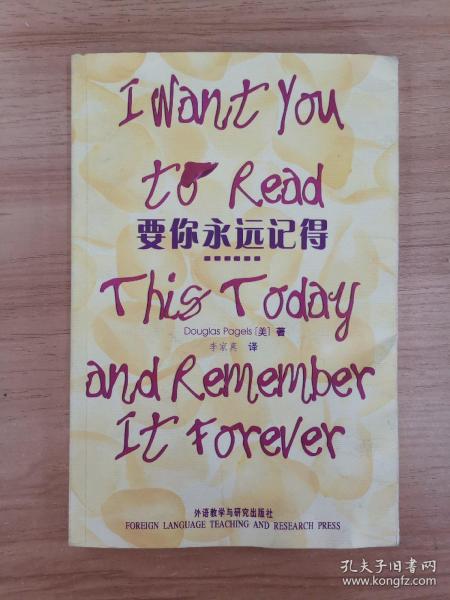 I Want You
to Read
要你永远记得
This Today
Douglas Pagels [美] 著
李家真 译
and Remember
It Forever
外语教学与研究出版社
FOREIGN LANGUAGE TEACHING AND RESEARCH PRESS
孔夫子旧书网
www.kongfz.com